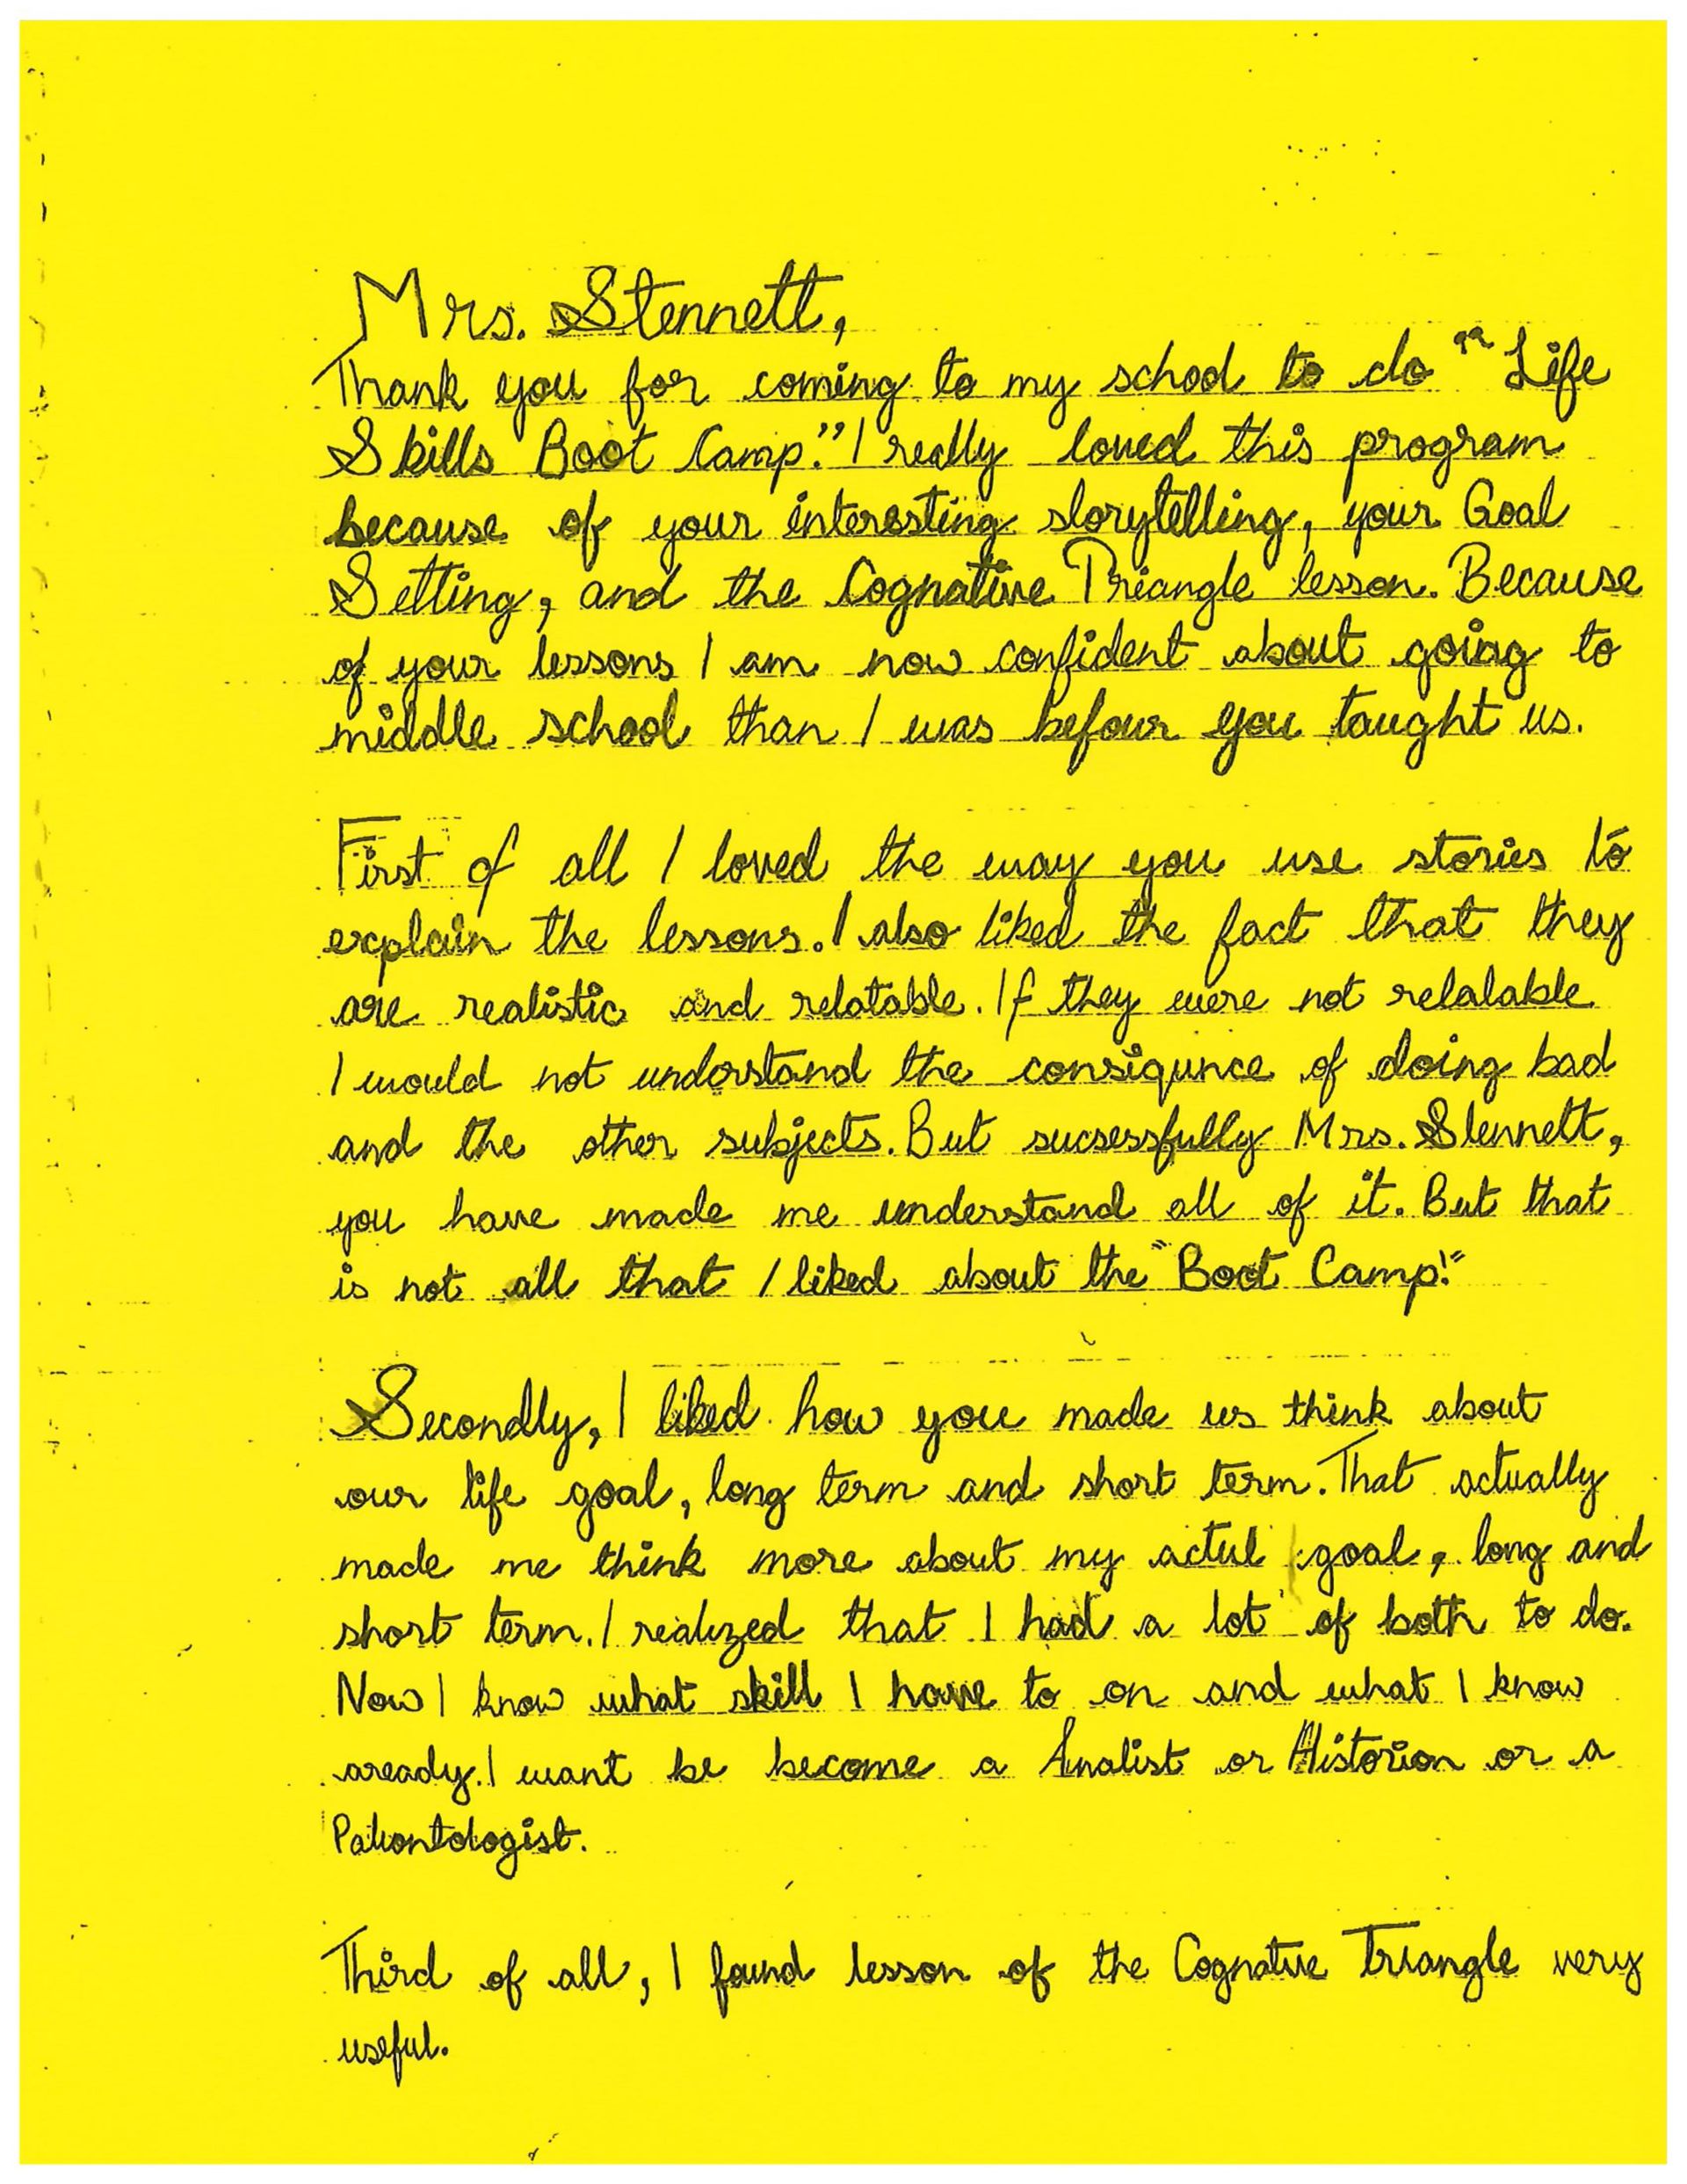 Mrs. Stennett,
Thank you for coming to my school to do "Life
Skills Boot Camp." I really loved this program
because of your interesting storytelling, your Goal
Setting, and the Cognative Triangle lesson. Because
of your lessons I am now confident about going to
middle school than I was befour you taught us.
First of all I loved the way you use stories to
explain the lessons. I also liked the fact that they
are realistic and relatable. If they were not relatable
I would not understand the consiqunce of doing bad
and the other subjects. But sucsessfully Mrs. Stennett,
you have made me understand all of it. But that
is not all that I liked about the "Boot Camp!"
Secondly, I liked how you made us think about
our life goal, long term and short term. That actually
made me think more about my actul goal, long and
short term. I realized that I had a lot of both to do.
Now I know what skill I have to on and what I know
aready. I want be become a Analist or Historian or a
Paliontologist.
Third of all, I found lesson of the Cognative Triangle very
useful.